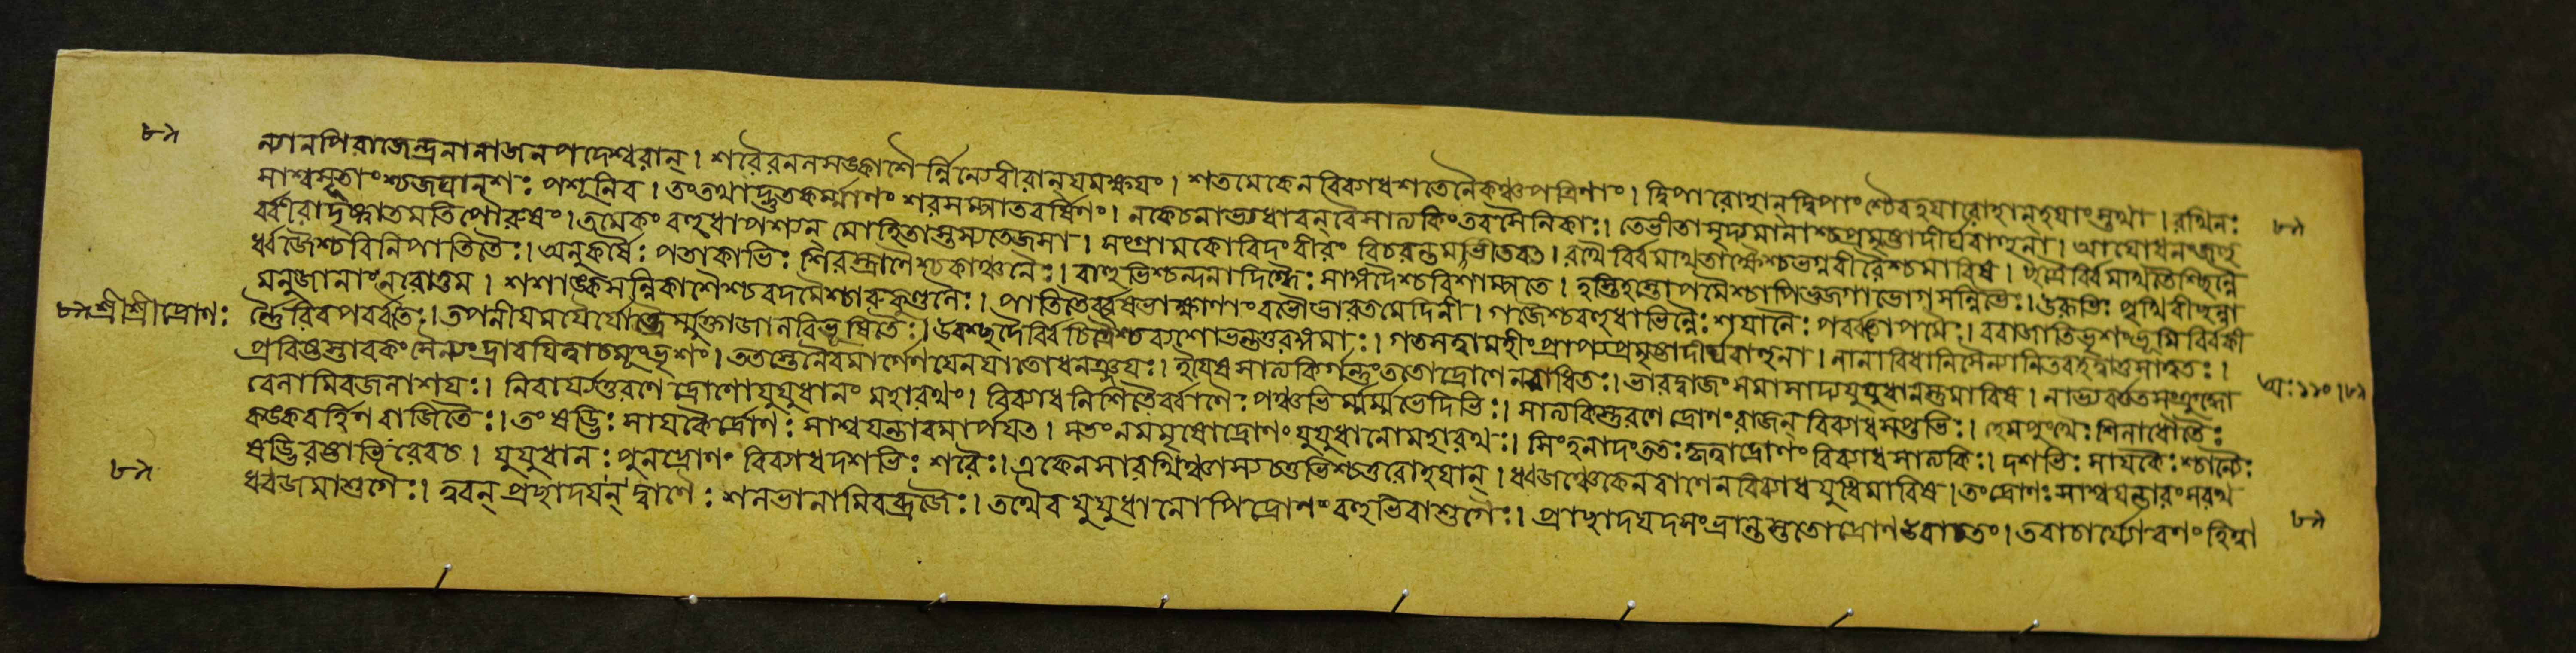 ৮৯
ন্যানপিরাজেন্দ্রনানাজনপদেশ্বরান্। শরৈরনলসঙ্কাশৈর্ন্নিন্যেবীরান্যমক্ষয়ং। শতমেকেনবিব্যাধশতেনৈকঞ্চপত্রিণাং। দ্বিপারোহান্দ্বিপাংশ্চৈবহয়ারোহান্হয়াংস্তথা। রথিনঃ
সাশ্বসূতাংশ্চজঘানেশঃ পশূনিব। তংতথাদ্ভুতকর্ম্মাণং শরসম্পাতবর্ষিণং। নকেচনাভ্যধাবন্বৈসাত্যকিংতবসৈনিকাঃ। তেভীতামৃদ্যমানাশ্চপ্রমৃষ্টাদীর্ঘবাহুনা। আয়োধনংজহু ৮৯
র্ব্বীরাদৃষ্ট্বাতমতিপৌরুষং। তমেকং বহুধাপশ্যন্ মোহিতাস্তস্যতেজসা। সংগ্রামকোবিদংবীরং বিচরন্তমভীতবত্। রথৈর্বিমথিতৈশ্চৈবভগ্ননীড়ৈশ্চমারিষ। চক্রৈর্বিমথিতৈশ্ছিন্নৈ
ধ্বজৈশ্চবিনিপাতিতৈঃ। অনুকর্ষৈঃ পতাকাভিঃ শিরস্ত্রাণৈশ্চকাঞ্চনৈঃ। বাহুভিশ্চন্দনাদিগ্ধৈঃ সাঙ্গদৈশ্চবিশাম্পতে। হস্তিহস্তোপমৈশ্চাপিভুজগাভোগসন্নিভৈঃ। ঊরুভিঃ পৃথিবীছন্না
মনুজানাংনরোত্তম। শশাঙ্কসন্নিকাশৈশ্চবদনৈশ্চারুকুণ্ডলৈঃ। পতিতৈর্বৃষভাক্ষাণাং বভৌভারতমেদিনী। গজৈশ্চবহুধাভিন্নৈঃ শয়ানৈঃ পর্ব্বতোপমৈঃ। ররাজাতিভৃশংভূমির্বিকী
৮৯ শ্রীশ্রীদ্রোণঃ র্ণৈরিবপর্ব্বতৈঃ। তপনীয়ময়ৈর্যোক্ত্রৈর্ম্মুক্তাজালবিভূষিতৈঃ। উরশ্ছদৈর্বিচিত্রৈশ্চব্যশোভন্ততুরঙ্গমাঃ। গতসত্ত্বামহীংপ্রাপ্যপ্রমৃষ্টাদীর্ঘবাহুনা। নানাবিধানিসৈন্যানিতবহত্বাতুসাত্বতঃ।
প্রবিষ্টস্তাবকংসৈন্যংদ্রাবয়িত্বাচমূংভৃশং। ততস্তেনৈবমার্গেণযেনযাতোধনঞ্জয়ঃ। ইয়েষসাত্যকির্গন্তুংততোদ্রোণেনবারিতঃ। ভারদ্বাজংসমাসাদ্যযুযুধানস্তমারিষ। নাভ্যবর্ত্ততসংক্রুদ্ধো অঃ ১১০। ৮৯
বেলামিবজলাশয়ঃ। নিবার্য্যতুরণেদ্রোণোযুযুধানং মহারথং। বিব্যাধনিশিতৈর্বাণৈঃ পঞ্চভির্ম্মর্ম্মভেদিভিঃ। সাত্যকিস্তুরণেদ্রোণংরাজন্ বিব্যাধসপ্তভিঃ। হেমপুংখৈঃ শিলাধৌতৈঃ
কঙ্কবর্হিণবাজিতৈঃ। তংষড়্ভিঃ সায়কৈর্দ্রোণঃ সাশ্বযন্তারমার্পয়ত। সতংনমমৃষেদ্রোণং যুযুধানোমহারথঃ। সিংহনাদংততঃকৃত্বাদ্রোণং বিব্যাধসাত্যকিঃ। দশভিঃ সায়কৈঃ শ্চান্যৈঃ
ষড়্ভিরষ্টাভিরেবচ। যুযুধানঃ পুনর্দ্রোণং বিব্যাধদশভিঃ শরৈঃ। একেনসারথিঞ্চাস্যচতুর্ভিশ্চতুরোহয়ান্। ধ্বজঞ্চৈকেনবাণেনবিব্যাধযুধিমারিষ। তংদ্রোণঃ সাশ্বযন্তারংসরথ
৮৯ ধ্বজমাশুগৈঃ। ত্বরন্ প্রাচ্ছাদয়দ্বাণৈঃ শলভানামিবব্রজৈঃ। তথৈবযুযুধানোপিদ্রোণং বহুভিরাশুগৈঃ। প্রাচ্ছাদয়দসংভ্রান্তস্ততোদ্রোণউবাচতং। তবাচার্য্যোরণংহিত্বা ৮৯